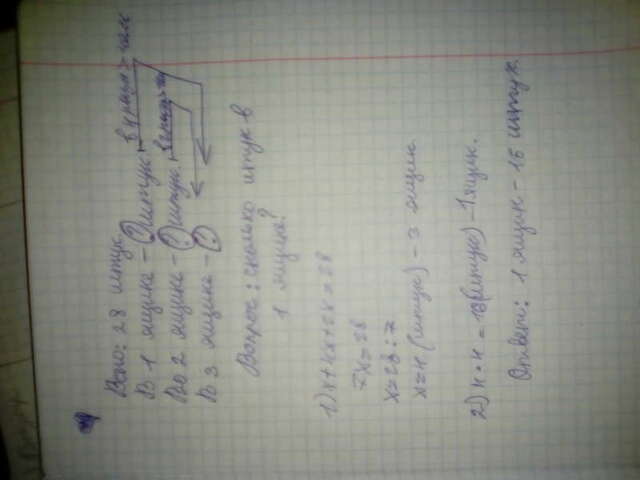 Всего: 28 штук
В 1 ящике - ? штук,
Во 2 ящике - ? штук,
В 3 ящике - ?
Вопрос: сколько штук в
1 ящике?
1) х+4х+2х=28
7х=28
х=28:7
х=4 (штуки) - 3 ящик
2) 4·4=16 (штук) - 1 ящик.
Ответ: 1 ящик - 16 штук